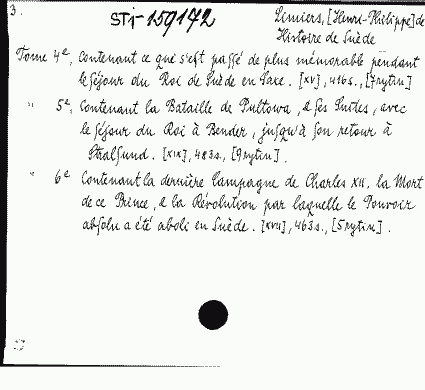 3.
ST1-159172
Limiers, [Henri-Philippe] de
Histoire de Suède
Tome 4e, Contenant ce qui s'est passé de plus mémorable pendant
le séjour du Roi de Suède en Saxe. [XV], 416 s., [7 rytin]
" 5e, Contenant la Bataille de Pultowa, & ses Suites, avec
le séjour du Roi à Bender, jusqu'à son retour à
Stralsund. [XIX], 483 s., [9 rytin].
" 6e Contenant la dernière Campagne de Charles XII, la Mort
de ce Prince, & la Révolution par laquelle le Pouvoir
absolu a été aboli en Suède. [XVII], 463 s., [5 rytin].